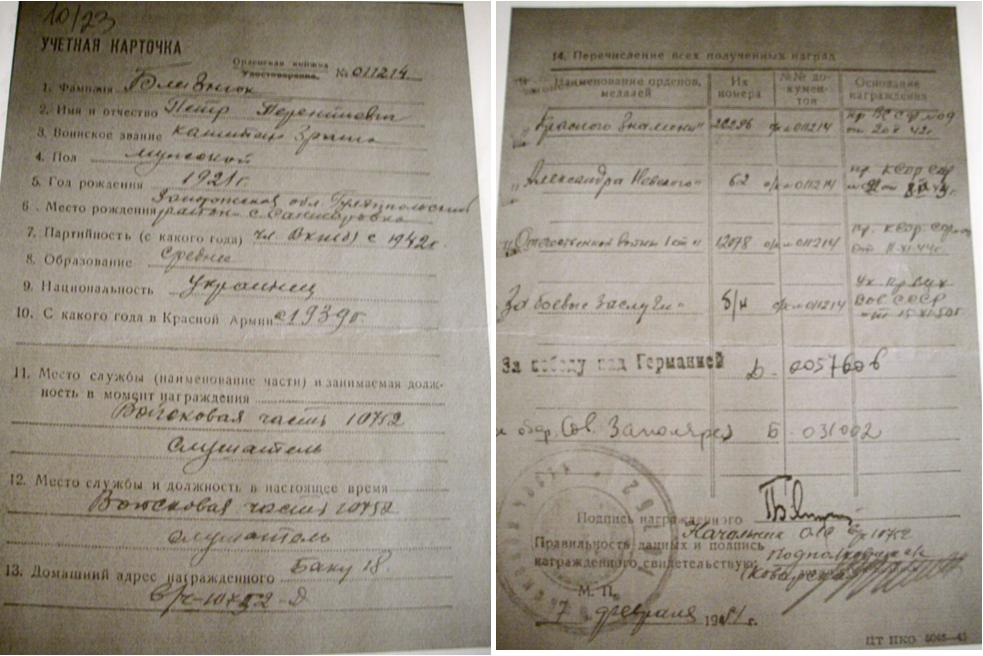 10/23
УЧЕТНАЯ КАРТОЧКА
Орденская книжка
Удостоверение № 011214
1. Фамилия
2. Имя и отчество Петр Терентиевич
3. Воинское звание капитан
4. Пол мужской
5. Год рождения 1921г.
Запорожская обл. Гуляйпольский
6. Место рождения район с.
7. Партийность (с какого года) чл. ВКП(б) с 1942г.
8. Образование Среднее
9. Национальность Украинец
10. С какого года в Красной Армии с 1939г
11. Место службы (наименование части) и занимаемая долж-
ность в момент награждения
Войсковая часть 10752
слушатель
12. Место службы и должность в настоящее время
Войсковая часть 10752
слушатель
13. Домашний адрес награжденного Баку 18.
в/ч-10752-Д
14. Перечисление всех полученных наград
Наименование орденов, медалей
Их номера
№№ до-кумен-тов
Основание награждения
"Красного Знамени" 011214
"Александра Невского" 62 011214
"Отечественной войны 1 ст" 12078 011214
За боевые заслуги" б/н 011214
За победу над Германией 0057606
обор. Сов. Заполярья Б- 031002
Подпись награжденного
Начальник 10752
Правильность данных и подпись
Подполковник
награжденного свидетельствую:
М. П.
7 февраля 1951 г.
ЦТ НКО